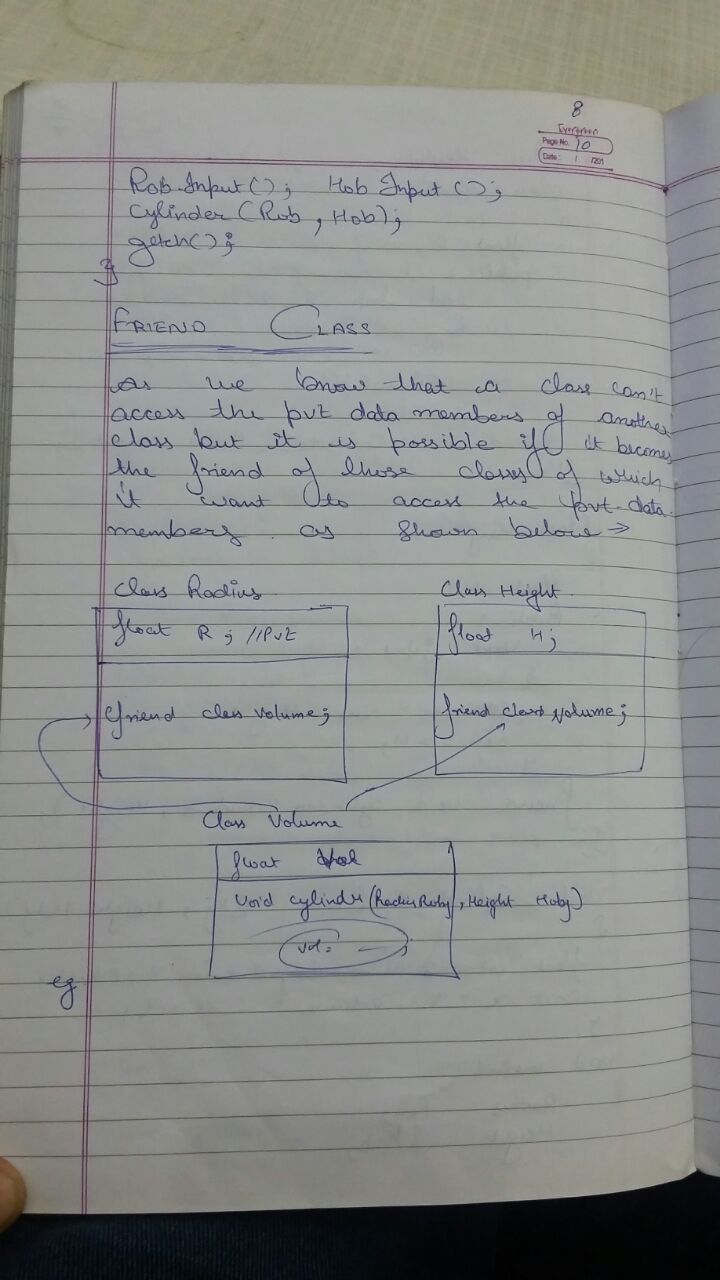 8
Evergreen
Page No. 10
Date: / /201
Rob.Input(); Hob Input();
Cylinder(Rob, Hob);
getch();
}
FRIEND CLASS
As we know that a class can't
access the pvt data members of another
class but it is possible if it becomes
the friend of those classes of which
it want to access the pvt data
members as shown below →
Class Radius Class Height
float R; //Pvt float H;
friend class volume; friend class volume;
Class Volume
float
void cylinder(Radius Robj, Height Hobj)
vol = — ;
eg